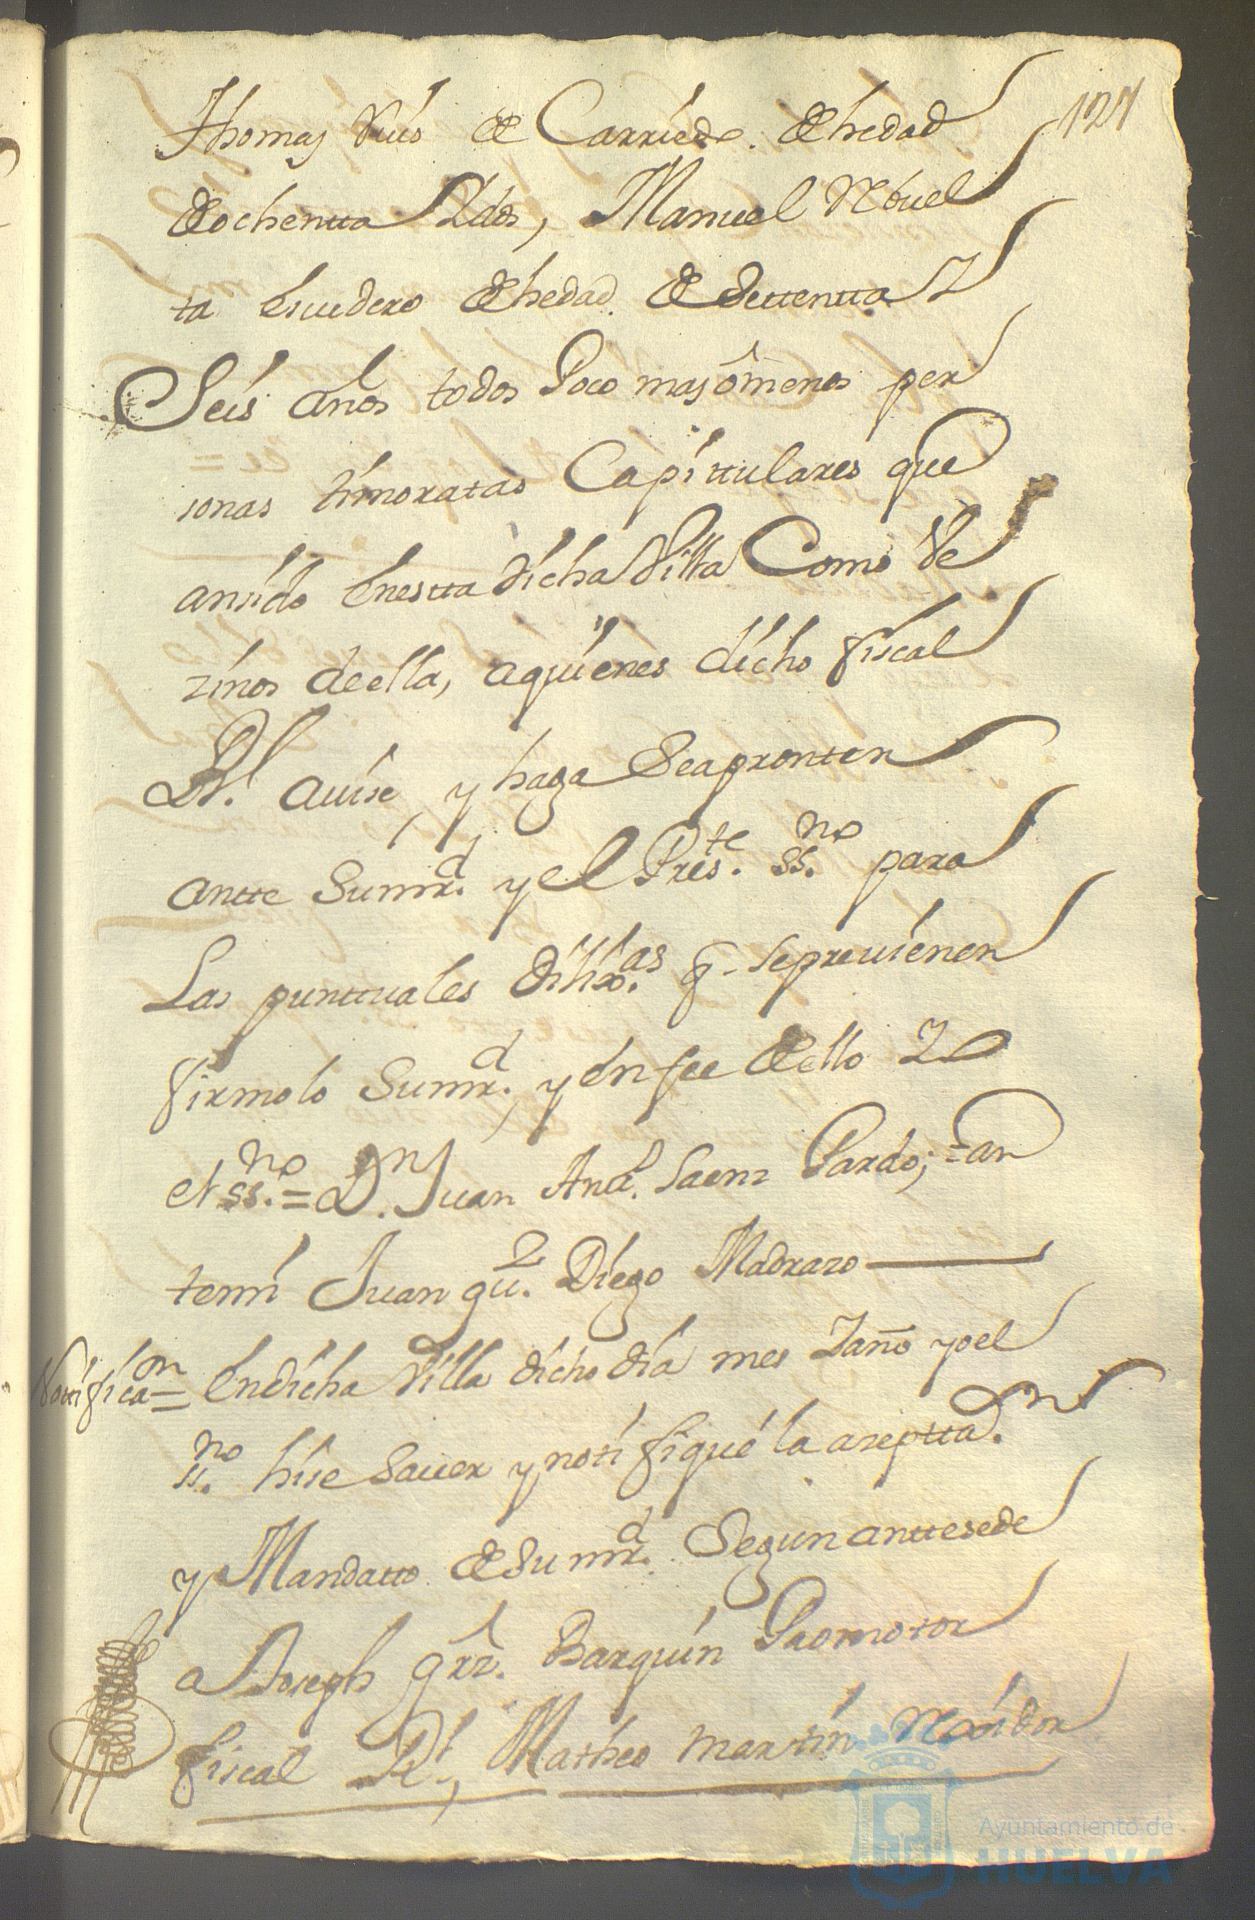 127
Thomas Ruis de Carriedo. de hedad
de ochentta Ados, Manuel Rebuel
ta escudero de hedad de Settentta Y
Seis años todos Poco mas ômenos per
sonas timoratas Capittulares que
an sido enestta dicha Villa Como Ve
zinos de ella, aquienes dicho fiscal
Rl. auise, y haga Seapronten
antte Sumrd. y el Preste. ssno. para
Las punttuales dilixas. q. seprevienen
firmolo Sumrd. y en fee de ello Yo
el ssno. = Dn. Juan Anda. Saenz Pardo; = an
temi Juan guz. Diego Madrazo
Nottificaon = En dicha Villa dicho dia mes Y año yo el
ssno. hise Sauer y notifiqué la aseptta.on
y Mandatto de Sumrd. Segun anttesede
a Joseph grrz. Barquin Promotor
fiscal Rl., Matheo Martin Rexidor
Ayuntamiento de
HUELVA